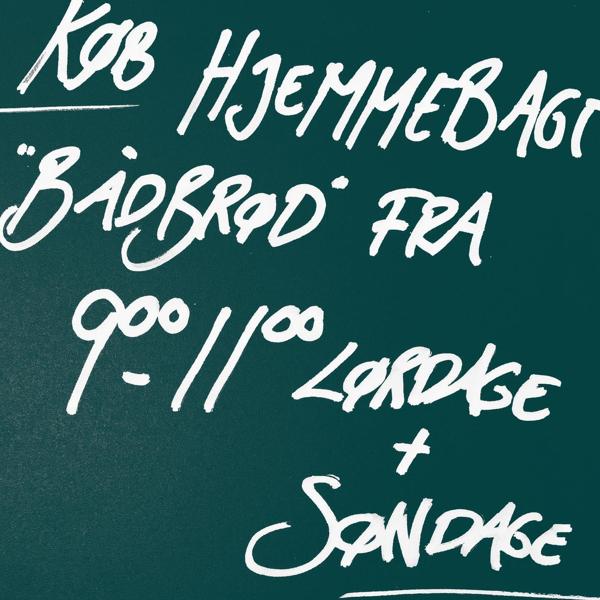 KØB HJEMMEBAGT
"BÅDBRØD" FRA
9⁰⁰-11⁰⁰ LØRDAGE
+
SØNDAGE